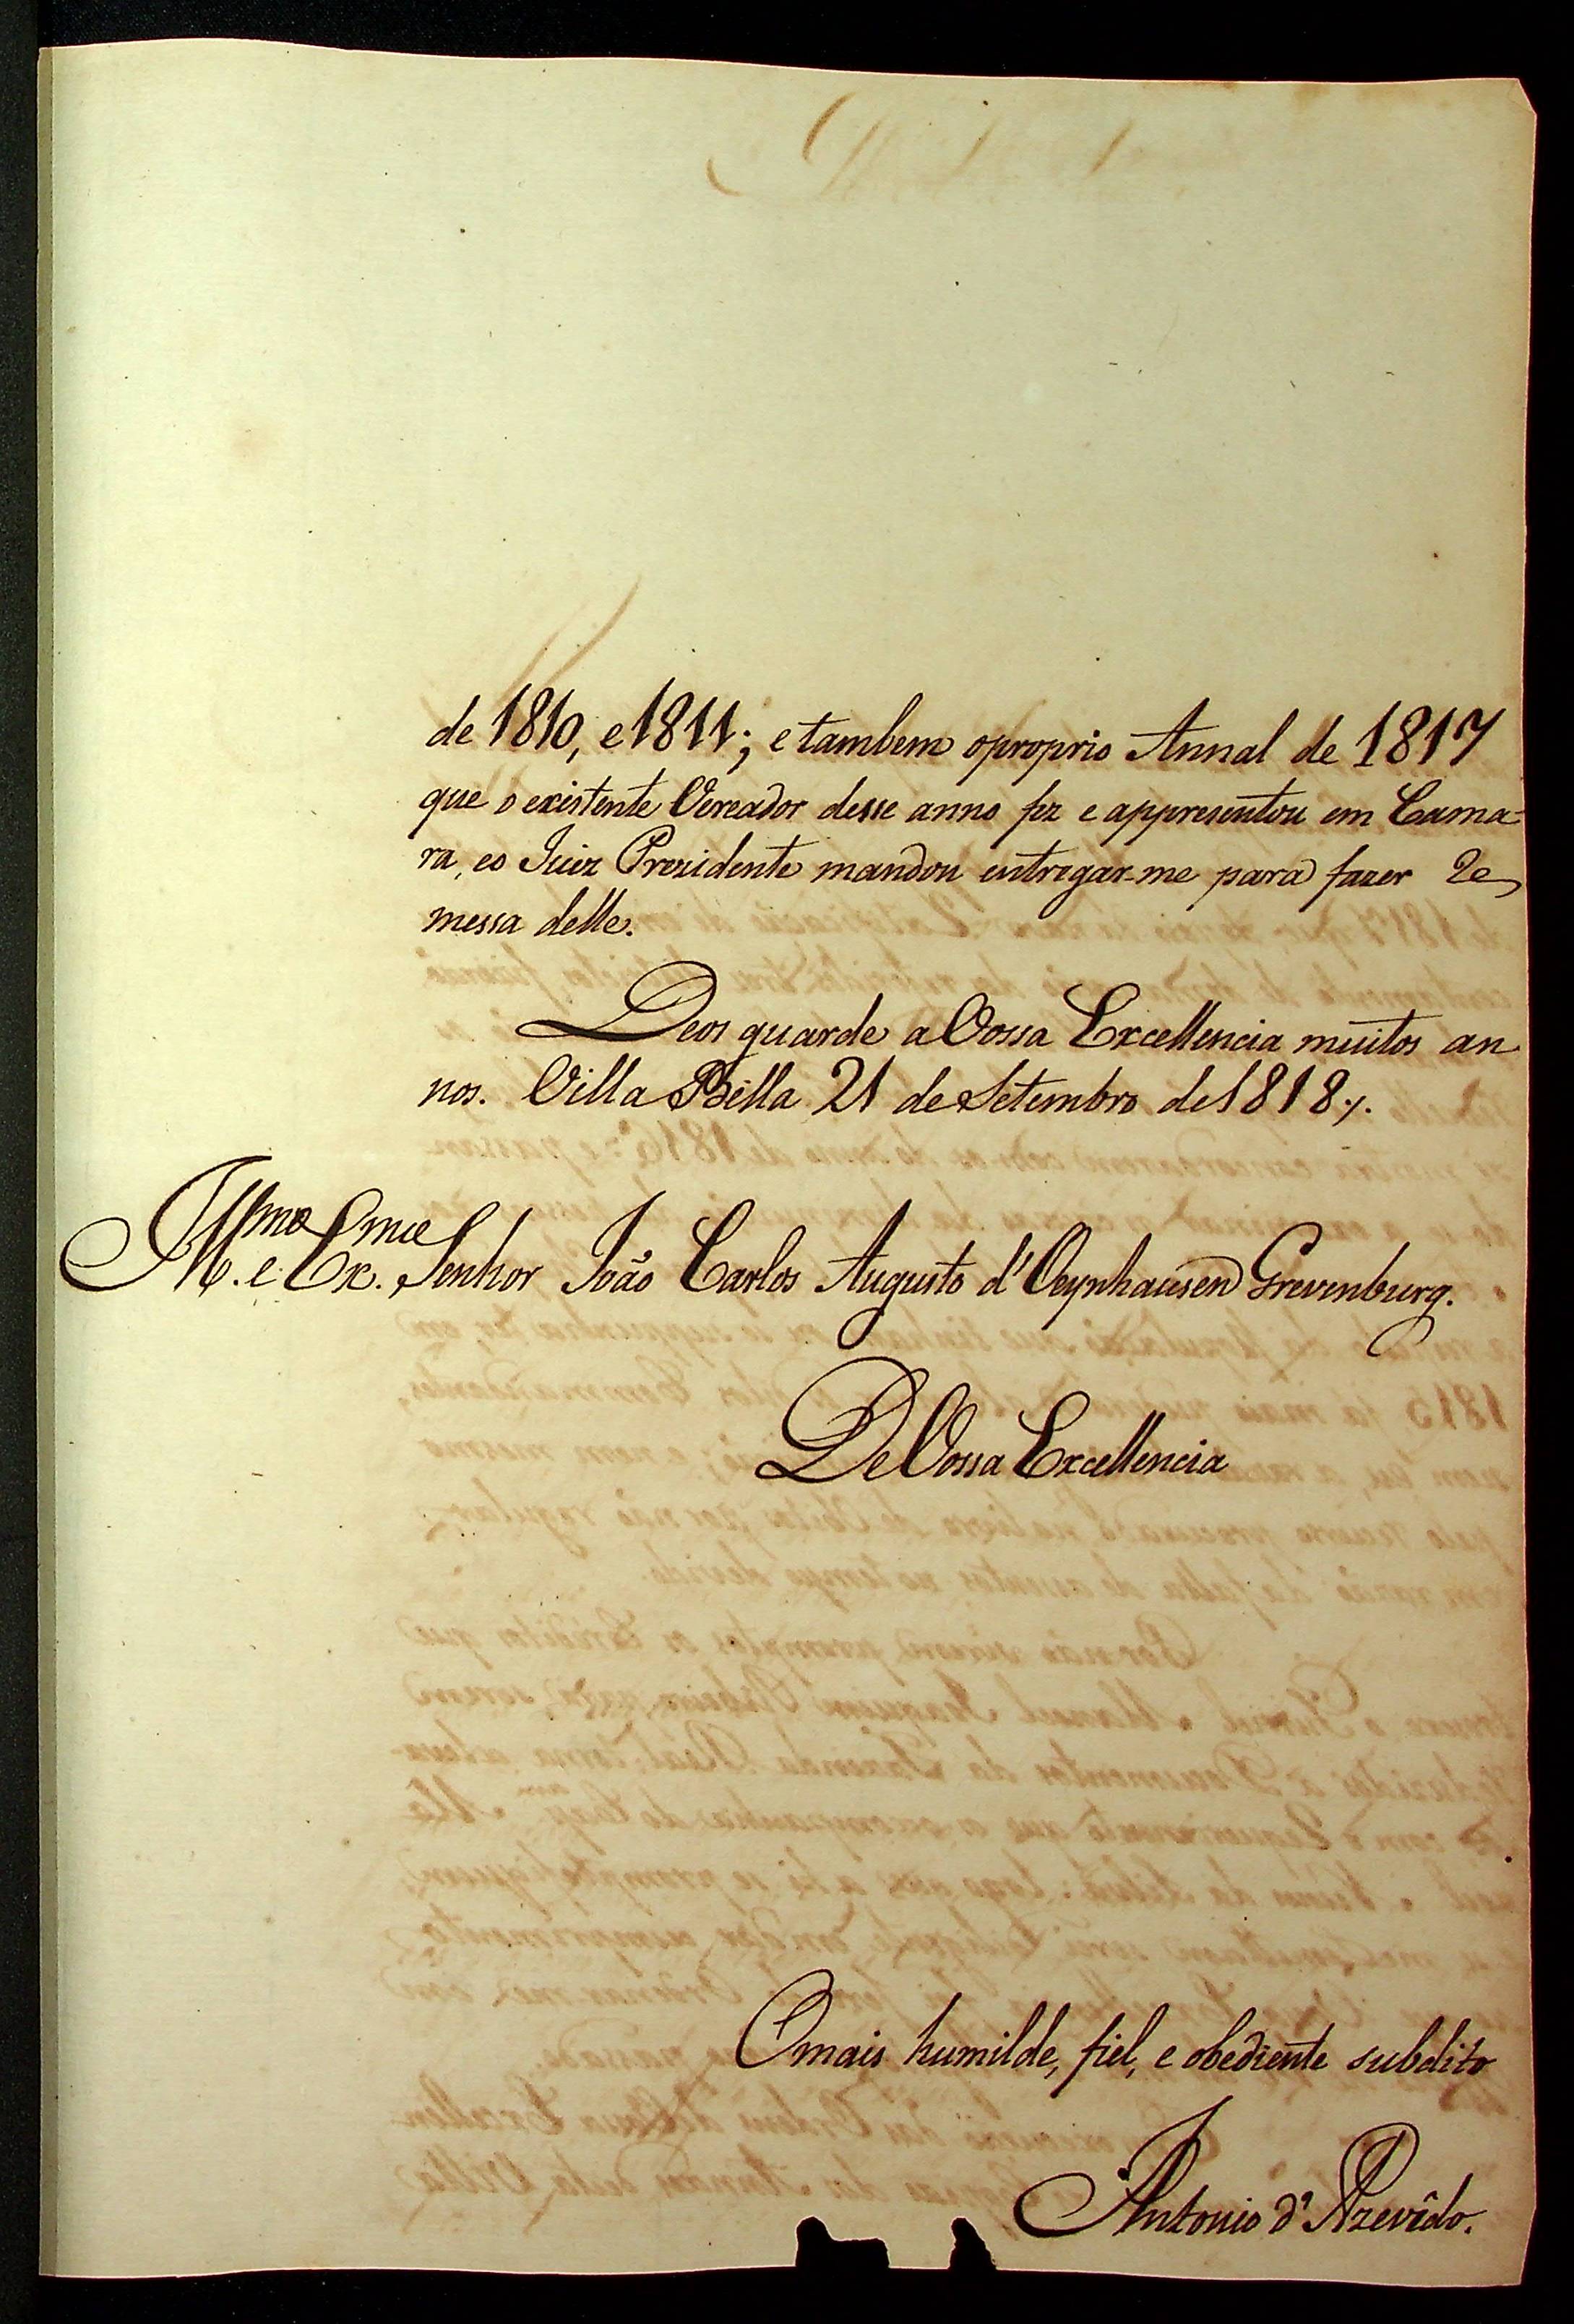 de 1810, e 1811; e tambem o proprio Annal de 1817
que o existente Vereador desse anno fez e appresentou em Cama-
ra, e o Juiz Prezidente mandou entregar-me para fazer Re
messa delle.
Deos guarde a Vossa Excellencia muitos an
nos. Villa Bella 21 de Setembro de 1818./.
Ill.mo e Ex.mo Senhor João Carlos Augusto d'Oeynhausen Grevenburg.
De Vossa Excellencia
O mais humilde, fiel, e obediente subdito
Antonio d'Azevêdo.